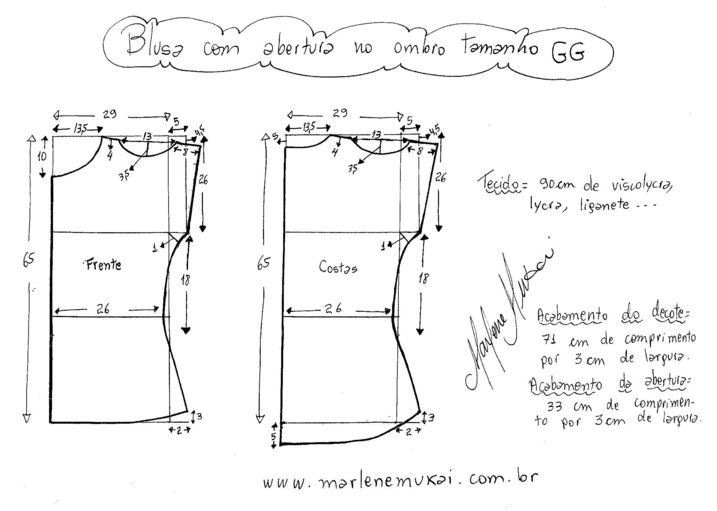 Blusa com abertura no ombro tamanho GG
29
5
13,5
13
4,5
10
4
3,5
8
26
65
1
Frente
18
26
3
2
29
5
5
13,5
13
4,5
4
3,5
8
26
65
1
Costas
18
26
3
5
2
Tecido = 90cm de viscolycra,
lycra, liganete ...
Marlene Mukai
Acabamento do decote =
71 cm de comprimento
por 3 cm de largura.
Acabamento da abertura =
33 cm de comprimen-
to por 3 cm de largura.
www.marlenemukai.com.br